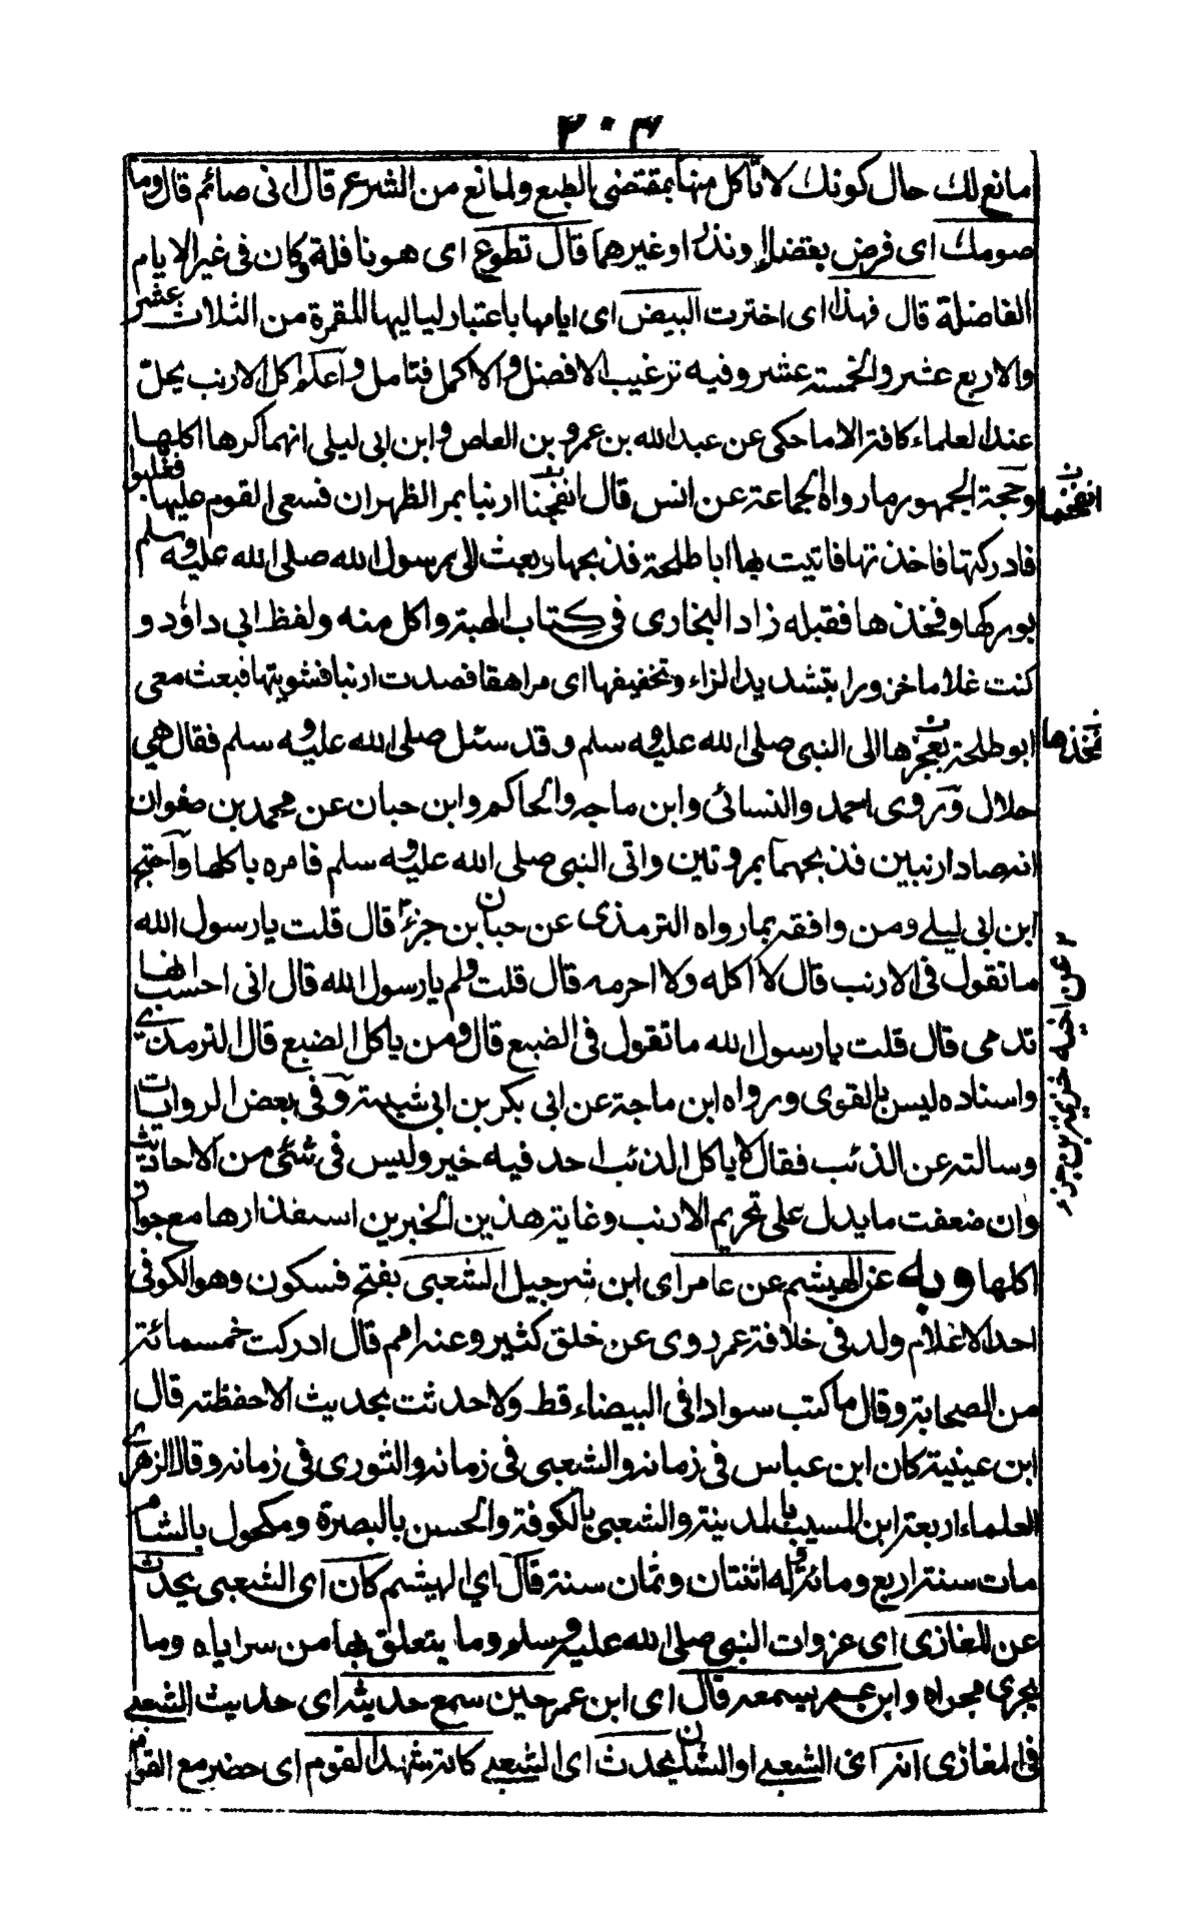 ٣٠٤
مانع لك حال كونك لا تأكل منها بمقتضى الطبع ولا مانع من الشرع قال انى صائم قال وما
صومك اى فرض بقضاء او نذر او غيرهما قال تطوع اى هو نافلة وكان فى غير الايام
الفاضلة قال فهذا اى اخترت البيض اى ايامها باعتبار لياليها المقمرة من الثلاث عشر
والاربع عشر والخمسة عشر وفيه ترغيب الافضل والاكمل فتامل واعلم اكل الارنب يحل
عند العلماء كافة الا ما حكى عن عبد الله بن عمرو بن العاص وابن ابى ليلى انهما كرها اكلها
وحجة الجمهور ما رواه الجماعة عن انس قال انفجنا ارنبا بمر الظهران فسعى القوم عليها فغلبوا
فادركتها فاخذتها فاتيت بها ابا طلحة فذبحها وبعث الى رسول الله صلى الله عليه وسلم
بوركها وفخذها فقبله زاد البخارى فى كتاب الهبة واكل منه ولفظ ابى داؤد و
كنت غلاما خزورا بتشديد الزاء وتخفيفها اى مراهقا فصدت ارنبا فشويتها فبعث معى
ابو طلحة بعجزها الى النبى صلى الله عليه وسلم وقد سئل صلى الله عليه وسلم فقال هى
حلال وروى احمد والنسائى وابن ماجه والحاكم وابن حبان عن محمد بن صفوان
انه صاد ارنبين فذبحهما بمروتين واتى النبى صلى الله عليه وسلم فامره باكلها واحتج
ابن ابى ليلے ومن وافقه بما رواه الترمذى عن حبان بن جزء قال قلت يا رسول الله
ما تقول فى الارنب قال لا اكله ولا احرمه قال قلت ولم يا رسول الله قال انى احسب انها
تدمى قال قلت يا رسول الله ما تقول فى الضبع قال ومن ياكل الضبع قال الترمذى
واسناده ليس بالقوى ورواه ابن ماجة عن ابى بكر بن ابى شيبة وفى بعض الروايات
وسالته عن الذئب فقال لا ياكل الذئب احد فيه خير وليس فى شئ من الاحاديث
وان ضعفت ما يدل على تحريم الارنب وغاية هذين الخبرين استقذارها مع جواز
اكلها وبه عن الهيثم عن عامر اى ابن شرجيل الشعبى بفتح فسكون وهو الكوفى
احد الاعلام ولد فى خلافة عمر روى عن خلق كثير وعنه امم قال ادركت خمسمائة
من الصحابة وقال ما كتب سوادا فى البيضاء قط ولا حدثت بحديث الا حفظته قال
ابن عينية كان ابن عباس فى زمانه والشعبى فى زمانه والثورى فى زمانه وقال الزهرى
العلماء اربعة ابن المسيب بالمدينة والشعبى بالكوفة والحسن بالبصرة ومكحول بالشام
مات سنة اربع ومائة وله اثنتان وثمان سنة قال اى الهيثم كان اى الشعبى يحدث
عن المغازى اى غزوات النبى صلى الله عليه وسلم وما يتعلق بها من سراياه وما
يجرى مجراه وابن عمر يسمعه قال اى ابن عمر حين سمع حديثه اى حديث الشعبے
فى المغازى انه اى الشعبے او الشان يحدث اى الشعبے كانه شهد القوم اى حضر مع القوم
انفجنا
فخذها
عن اخيه خزيمة بن جزء